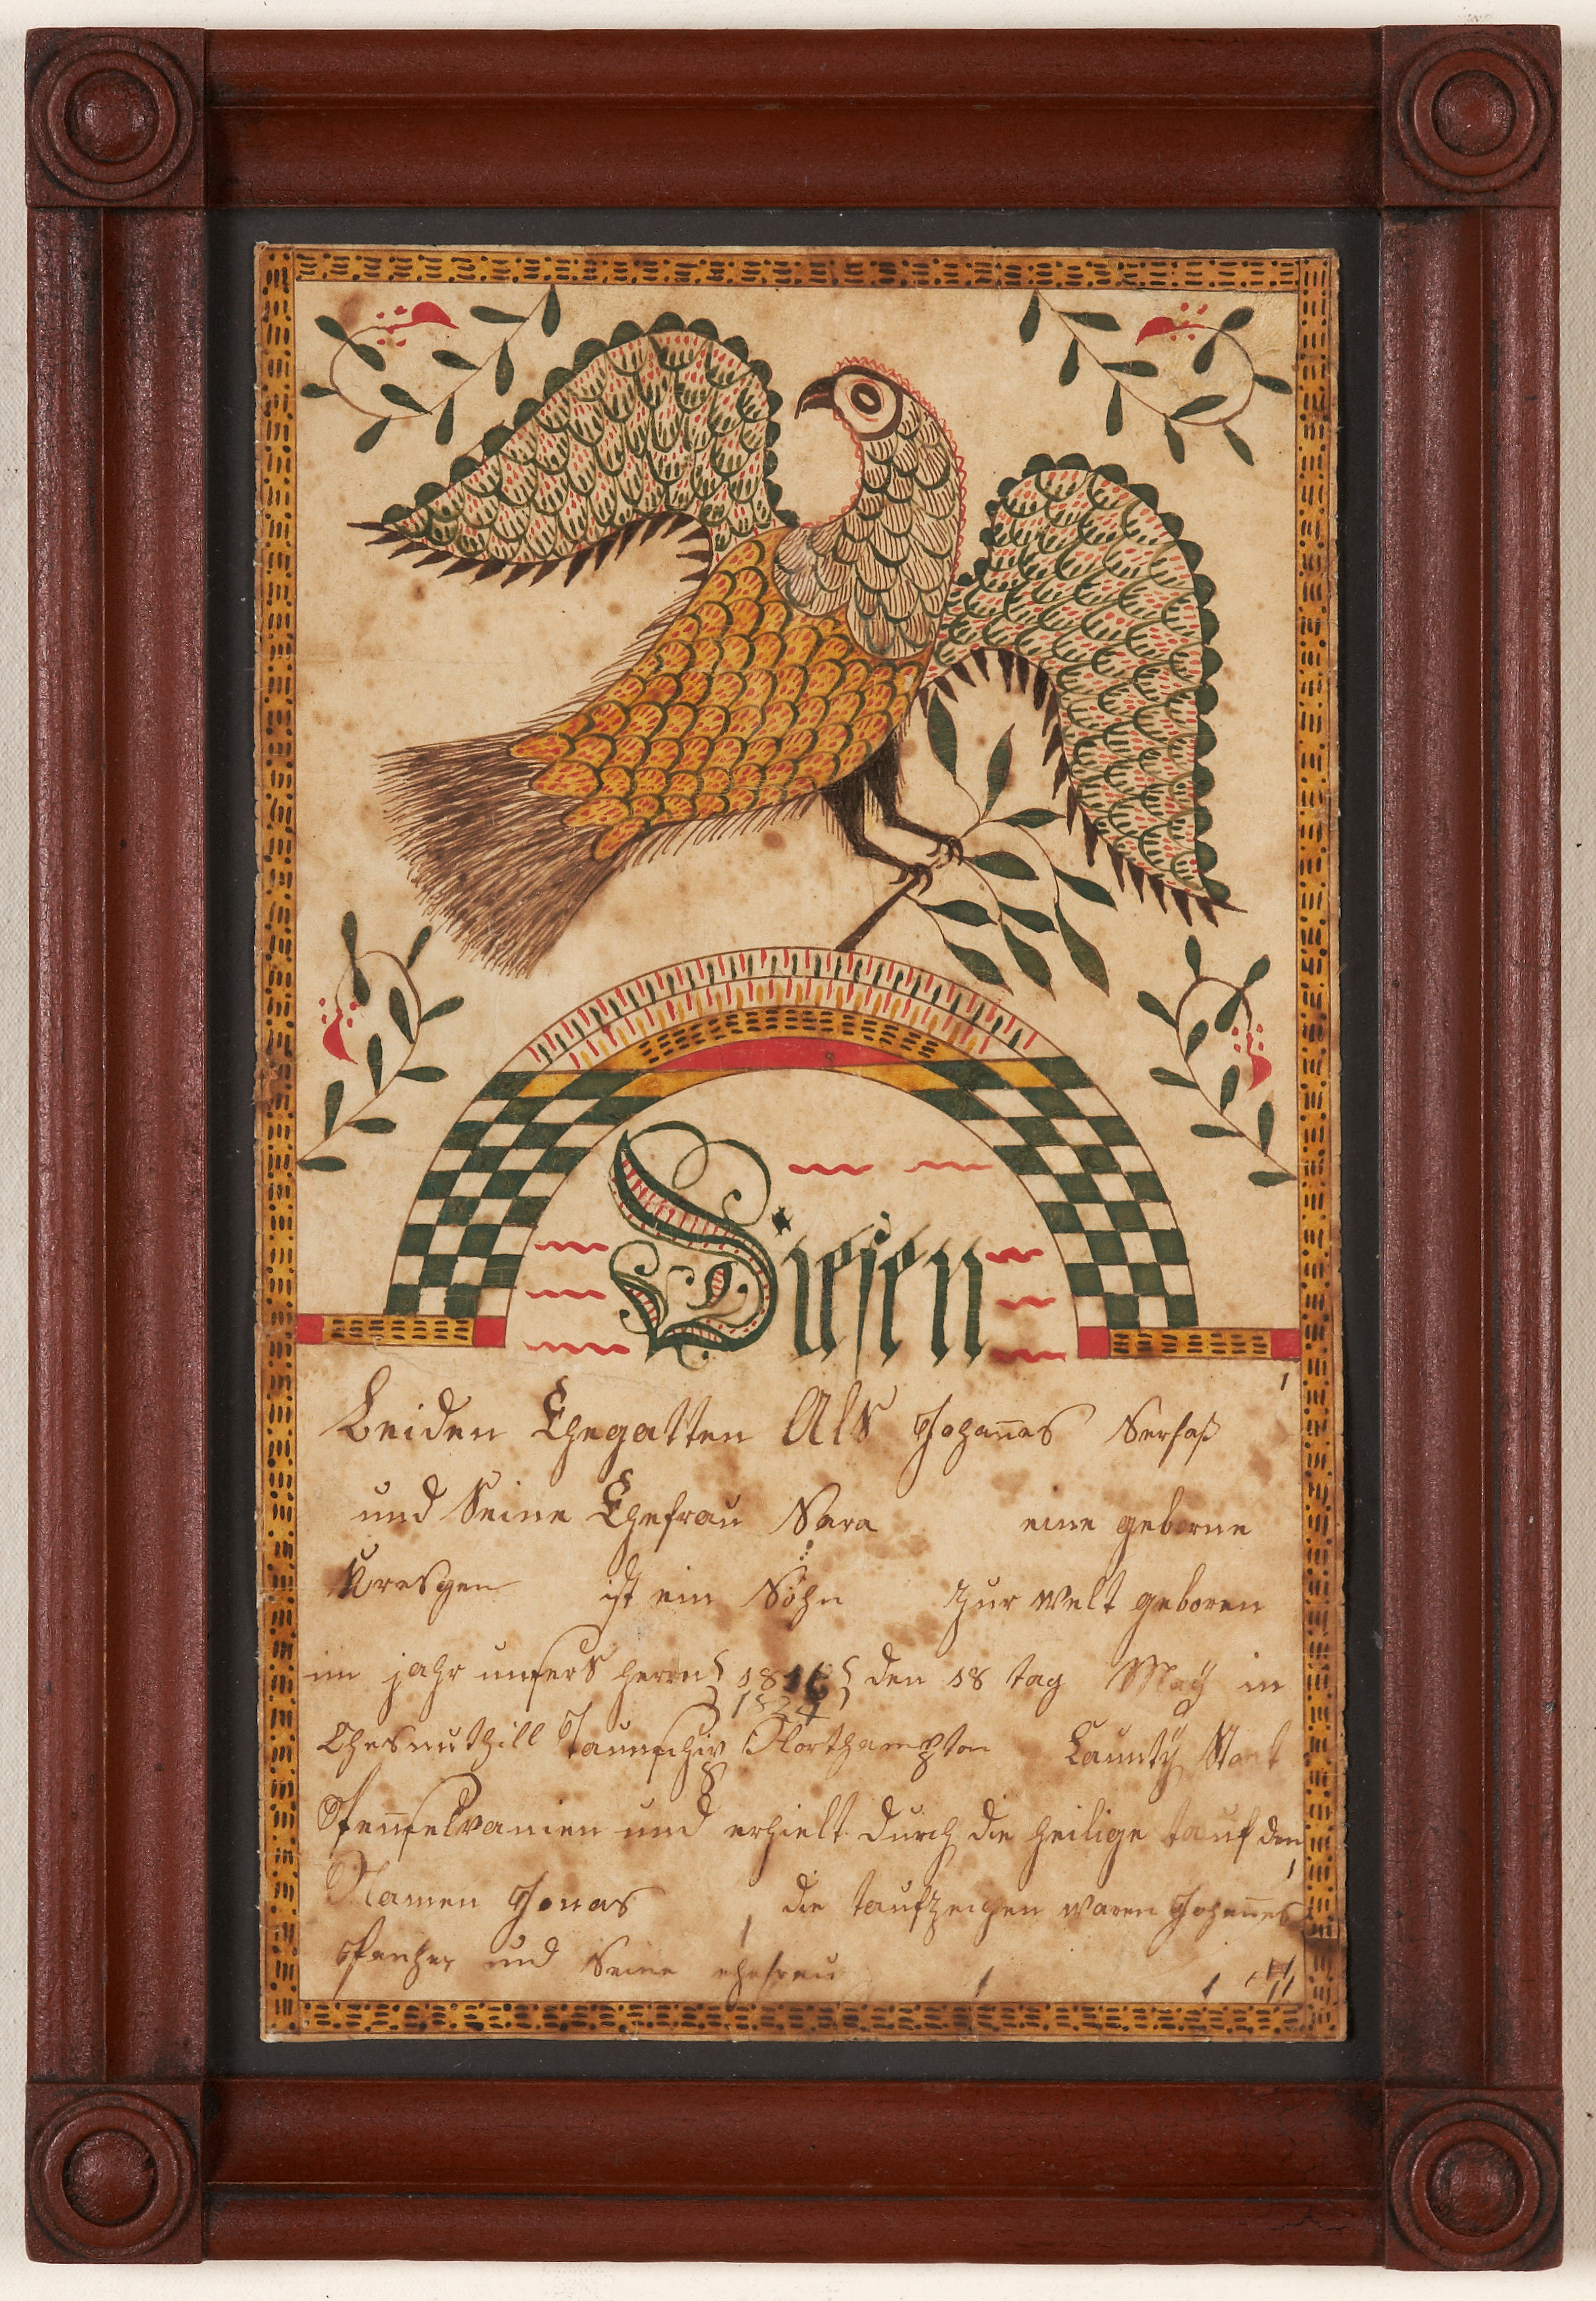 Diesen
beiden Ehegatten Als Johannes Serfaß
und Seine Ehefrau Sara eine geborne
Kresgen ist ein Sohn zur welt geboren
im jahr unsers herrn den 18 tag May in
1824
Chesnuthill Taunschip Northampton Caunty Staat
Pennselvanien und erhielt durch die heilige tauf den
Namen Jonas die taufzeugen waren Johannes
und Seine ehefrau